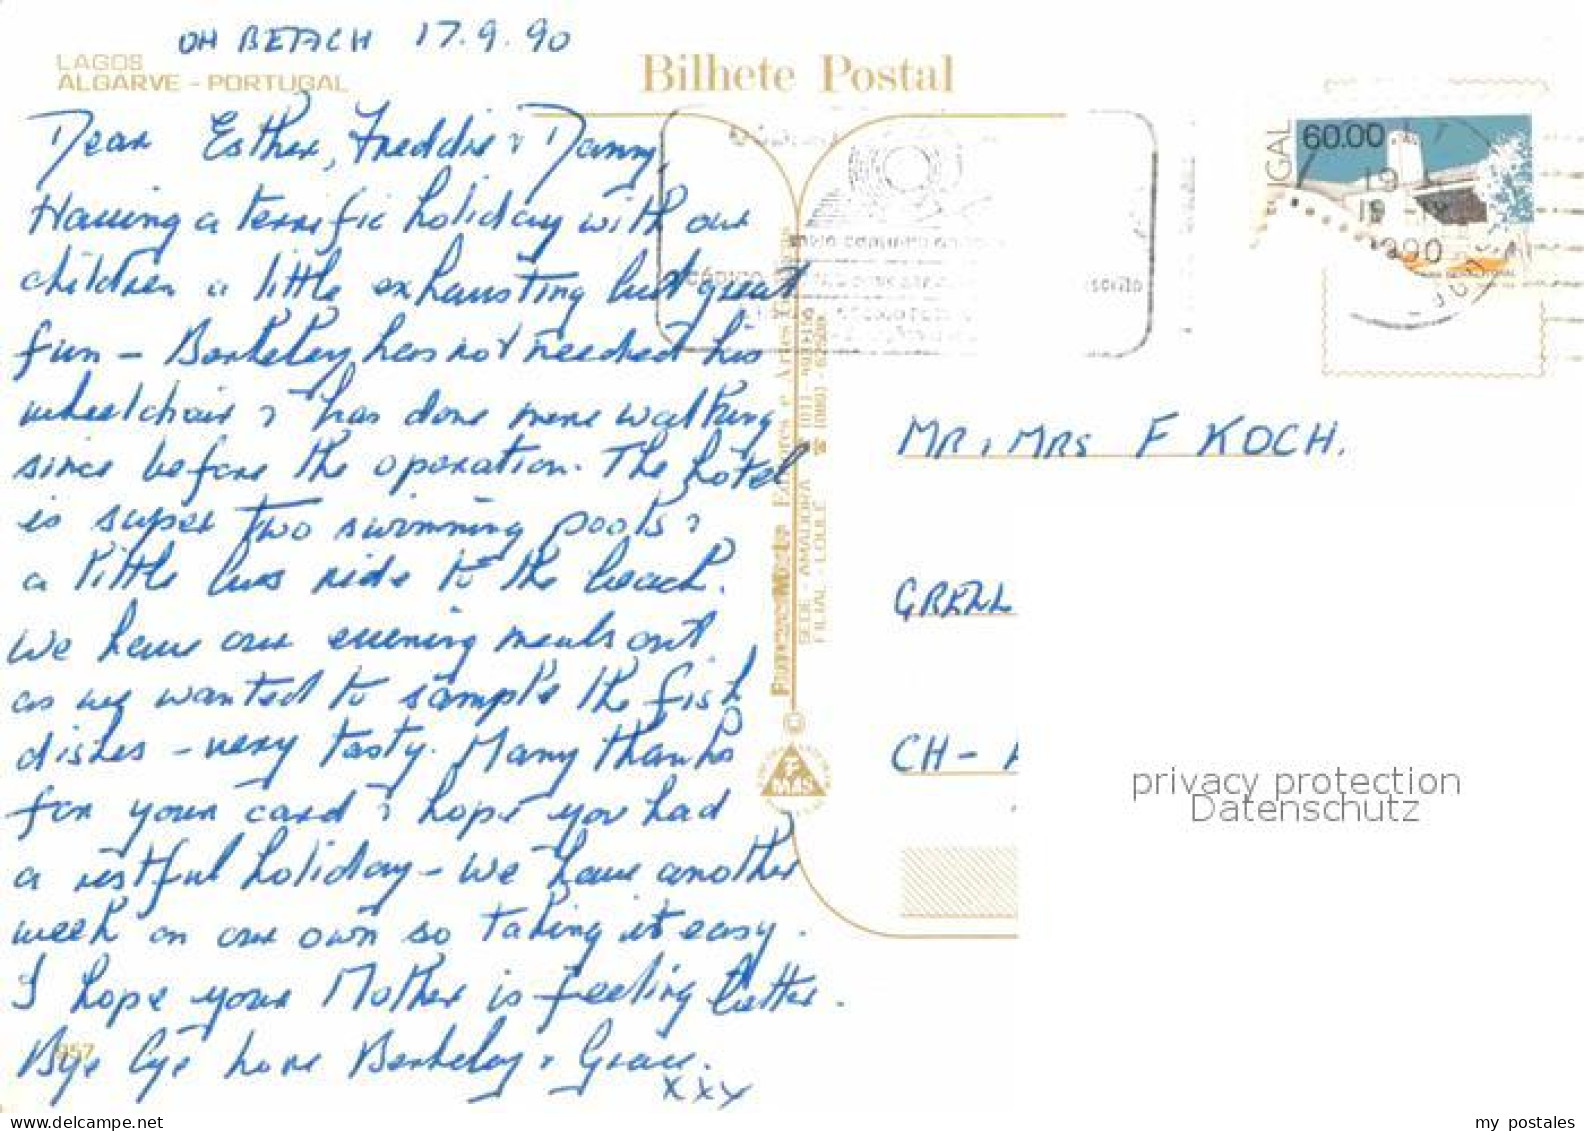 ON BEACH 17.9.90
LAGOS
ALGARVE - PORTUGAL
Bilhete Postal
Dear Esther, Freddie & Danny,
Having a terrific holiday with our
children a little exhausting but great
fun - Berkeley has not needed his
wheelchair & has done more walking
since before the operation. The hotel
is super two swimming pools &
a little bus ride to the beach.
We have our evening meals out
as we wanted to sample the fish
dishes - very tasty. Many thanks
for your card & hope you had
a restful holiday - we have another
week on our own so taking it easy.
I hope your Mother is feeling better.
Bye Bye love Berkeley & Grace.
xxx
957
SEDE - AMADORA
FILIAL - LOULÉ
©
F
MAS
PORTUGAL
60.00
19
1990
CÓDIGO
MR, MRS F KOCH.
CH -
privacy protection
Datenschutz
my postales